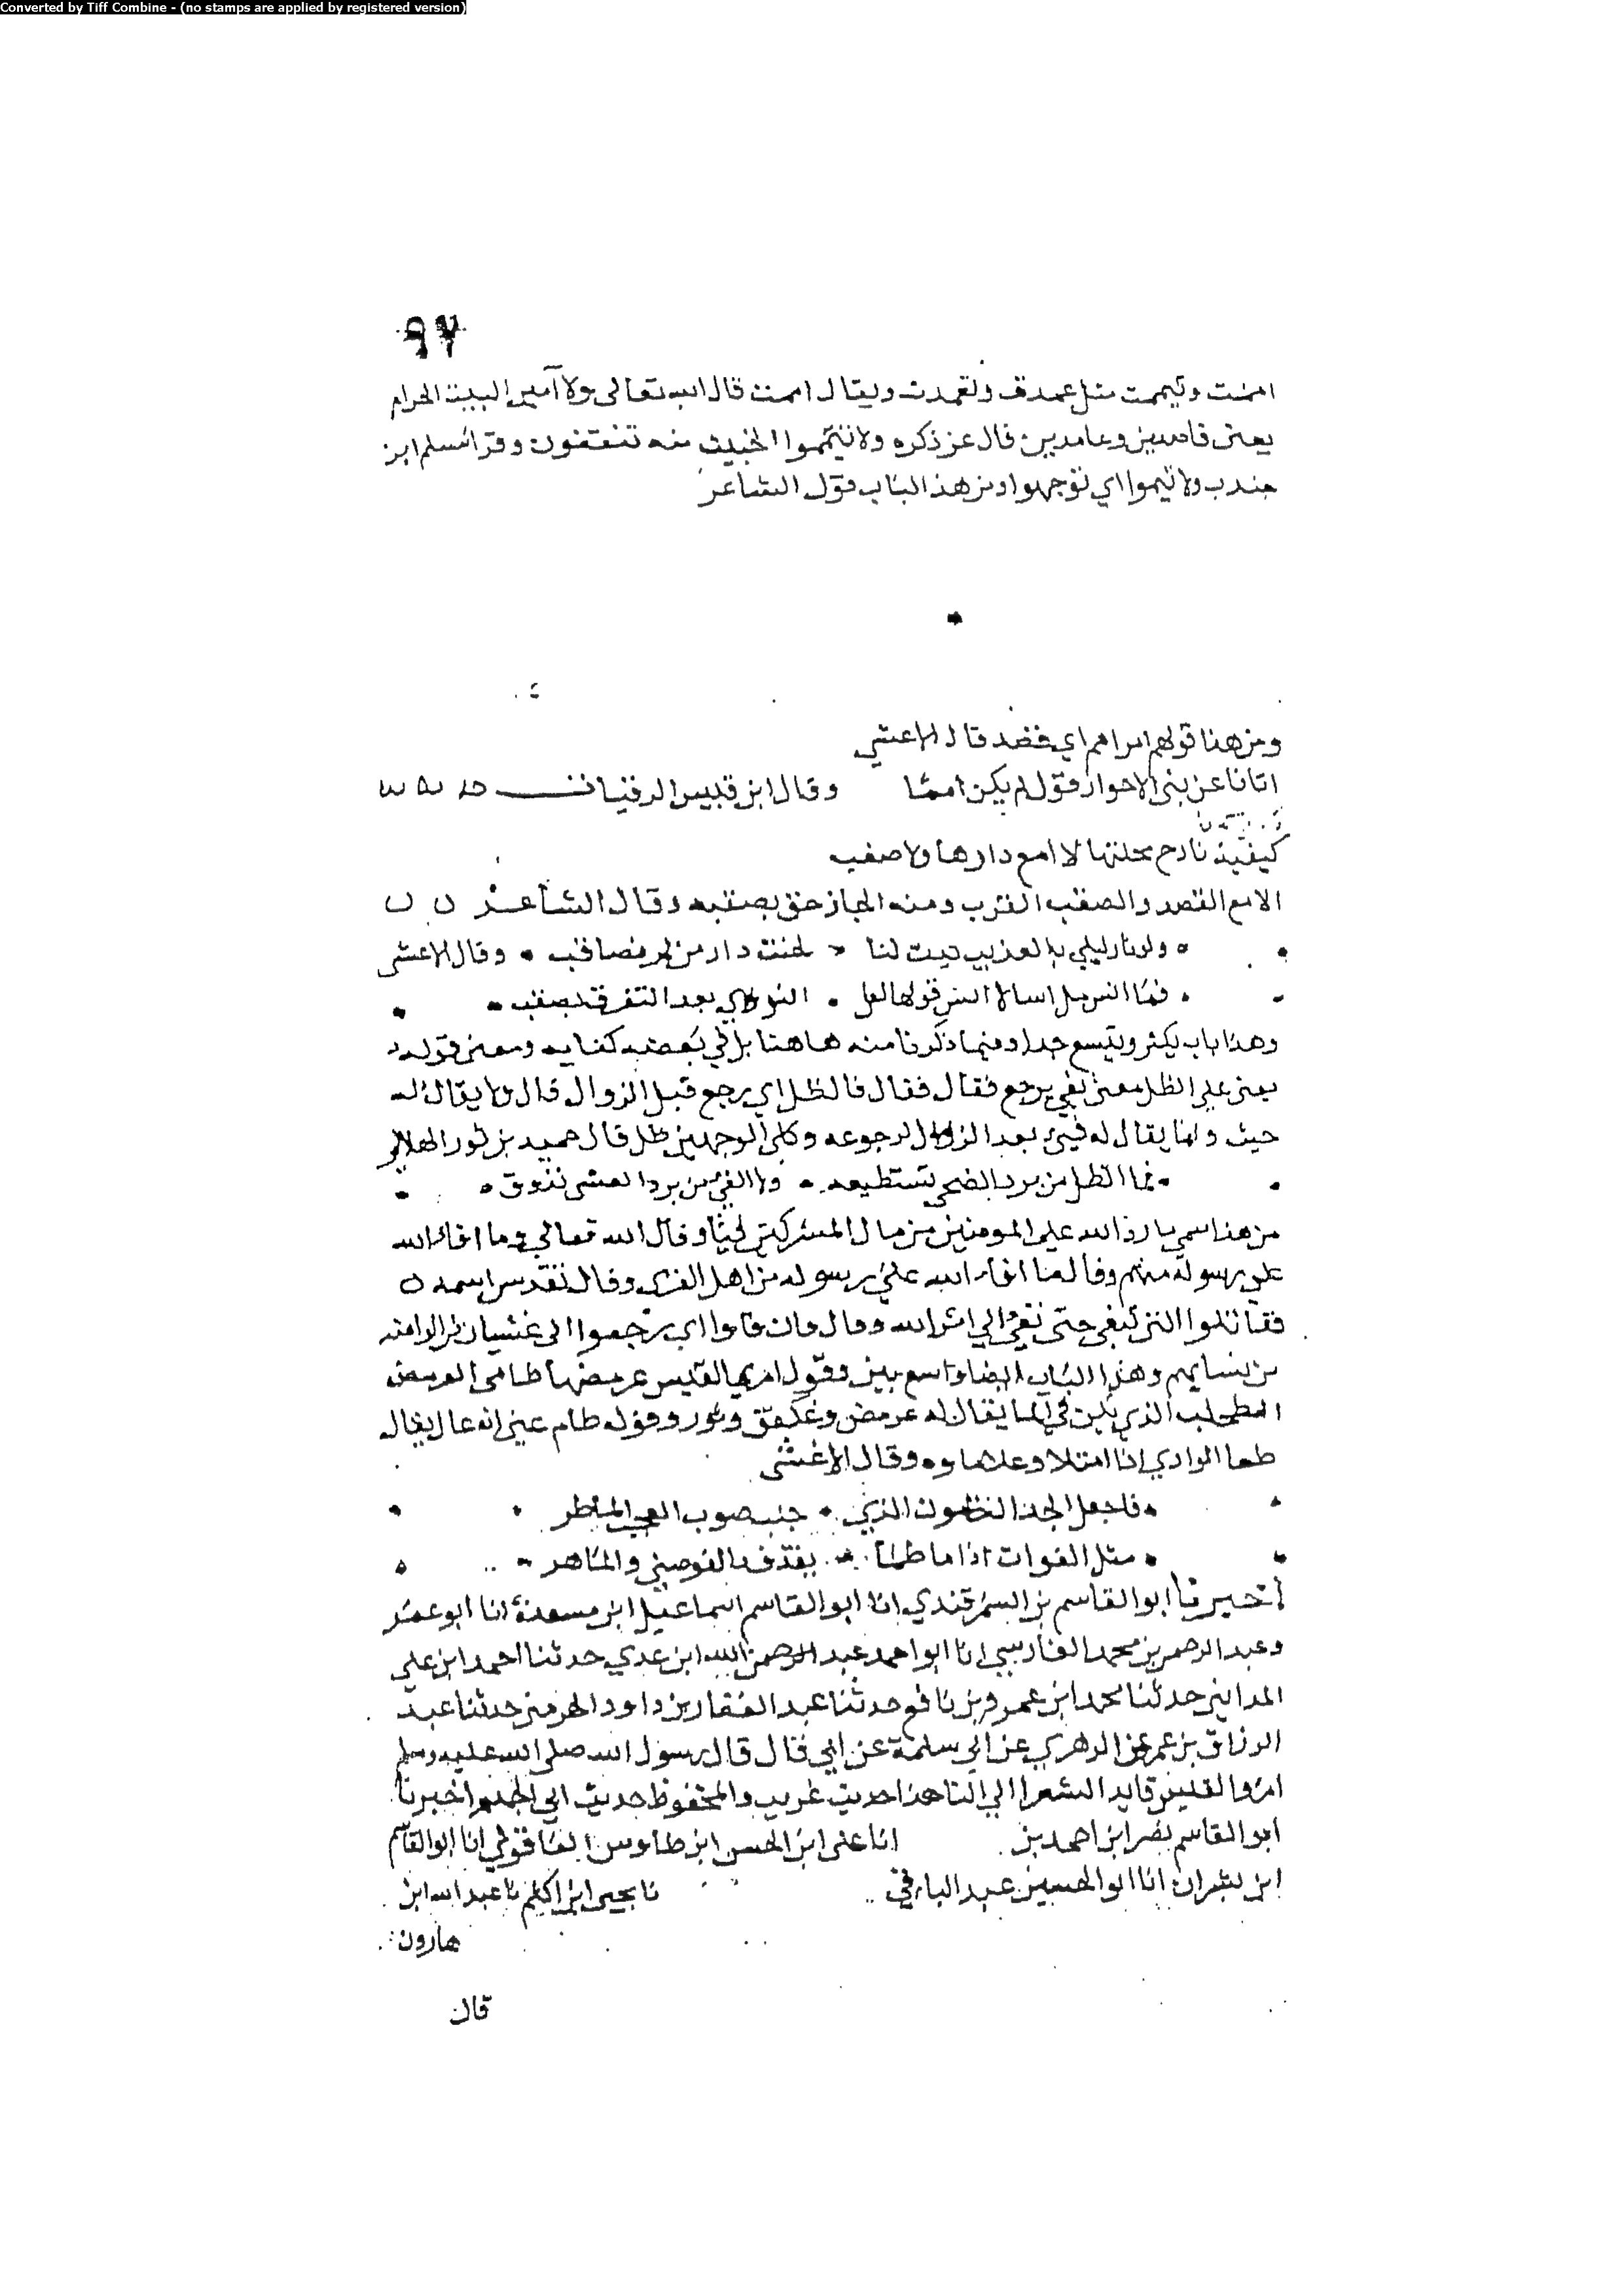 Converted by Tiff Combine - (no stamps are applied by registered version)
٩٧
اممت وتيممت مثل عمدت وتعمدت ويقال اممت قال الله تعالى ولا آمين البيت الحرام
يعني قاصدين وعامدين قال عز ذكره ولا تيمموا الخبيث منه تنفقون وقرا مسلم ابن
جندب ولا تيمموا اي توجهوا ومن هذا الباب قول الشاعر
ومن هنا قولهم امر امم اي قصد قال الاعشى
اتانا عن بني الاحرار قول لم يكن امما وقال ابن قيس الرقيات
نازح محلتها لا امم دارها ولا صقب
الامم القصد والصقب القرب ومنه الجار حق بصقبه وقال الشاعر
ولو نار ليلى بالعذيب بدت لنا لحنت دار من لم نصاقب وقال الاعشى
النوى بعد التفرق تصقب
وهذا باب يكثر ويتسع جدا وفيما ذكرنا منه هاهنا بل في بعضه كفاية ومعنى قوله
يفيء عليها الظل معنى يفي يرجع فقال فقال فا الظل اي يرجع قبل الزوال قال ولا يقال له
حيث وانما يقال له فيئ بعد الزوال لرجوعه وكلا الوجهين ظل قال حميد بن ثور الهلالي
فما الظل من برد الضحى تستطيعه ولا الفيئ من برد العشى تذوق
من هذا سمي ما رد الله على المومنين من مال المشركين فيئا وقال الله تعالى وما افاء الله
على رسوله منهم وقال ما افاء الله على رسوله من اهل القرى وقال تقدس اسمه
فقاتلوا التي تبغي حتى تفيئ الي امر الله وقال فان فاءوا اي رجعوا الى غشيان
من نسايهم وهذا الباب ايضا واسع بين وقول امري القيس عرمضها طامي العرمض
الطحلب الذي يكون في الما يقال له عرمض وغلفق وثور وقوله طام عنى انه عال يقال
طما الوادي اذا امتلا وعلا ماوه وقال الاعشى
فاجعل الجد الظنون الذي جنب صوب اللجب الماطر
مثل الفرات اذا ما طما يقذف بالبوصي والماهر
اخبرنا ابو القاسم بن السمرقندي انا ابو القاسم اسماعيل ابن مسعدة انا ابو عمر
وعبد الرحمن بن محمد الفارسي انا ابو احمد عبد الرحمن الله ابن عدي حدثنا احمد ابن علي
المدايني حدثنا محمد ابن عمرو بن نافع حدثنا عبد الغفار بن داود حدثنا عبد
الرزاق بن عمر عن الزهري عن ابي سلمة عن ابي قال قال رسول الله صلى الله عليه وسلم
امرؤ القيس قايد الشعرا الي النار هذا حديث غريب والمحفوظ حديث ابي الجهم اخبرنا
ابو القاسم نصر ابن احمد بن انا علي ابن الحسن ابن طاوس العاقولي انا ابو القاسم
ابن بشران انا ابو الحسين عبد الباقي نا يحيى ابن اكثم نا عبد الله ابن
هارون
قال